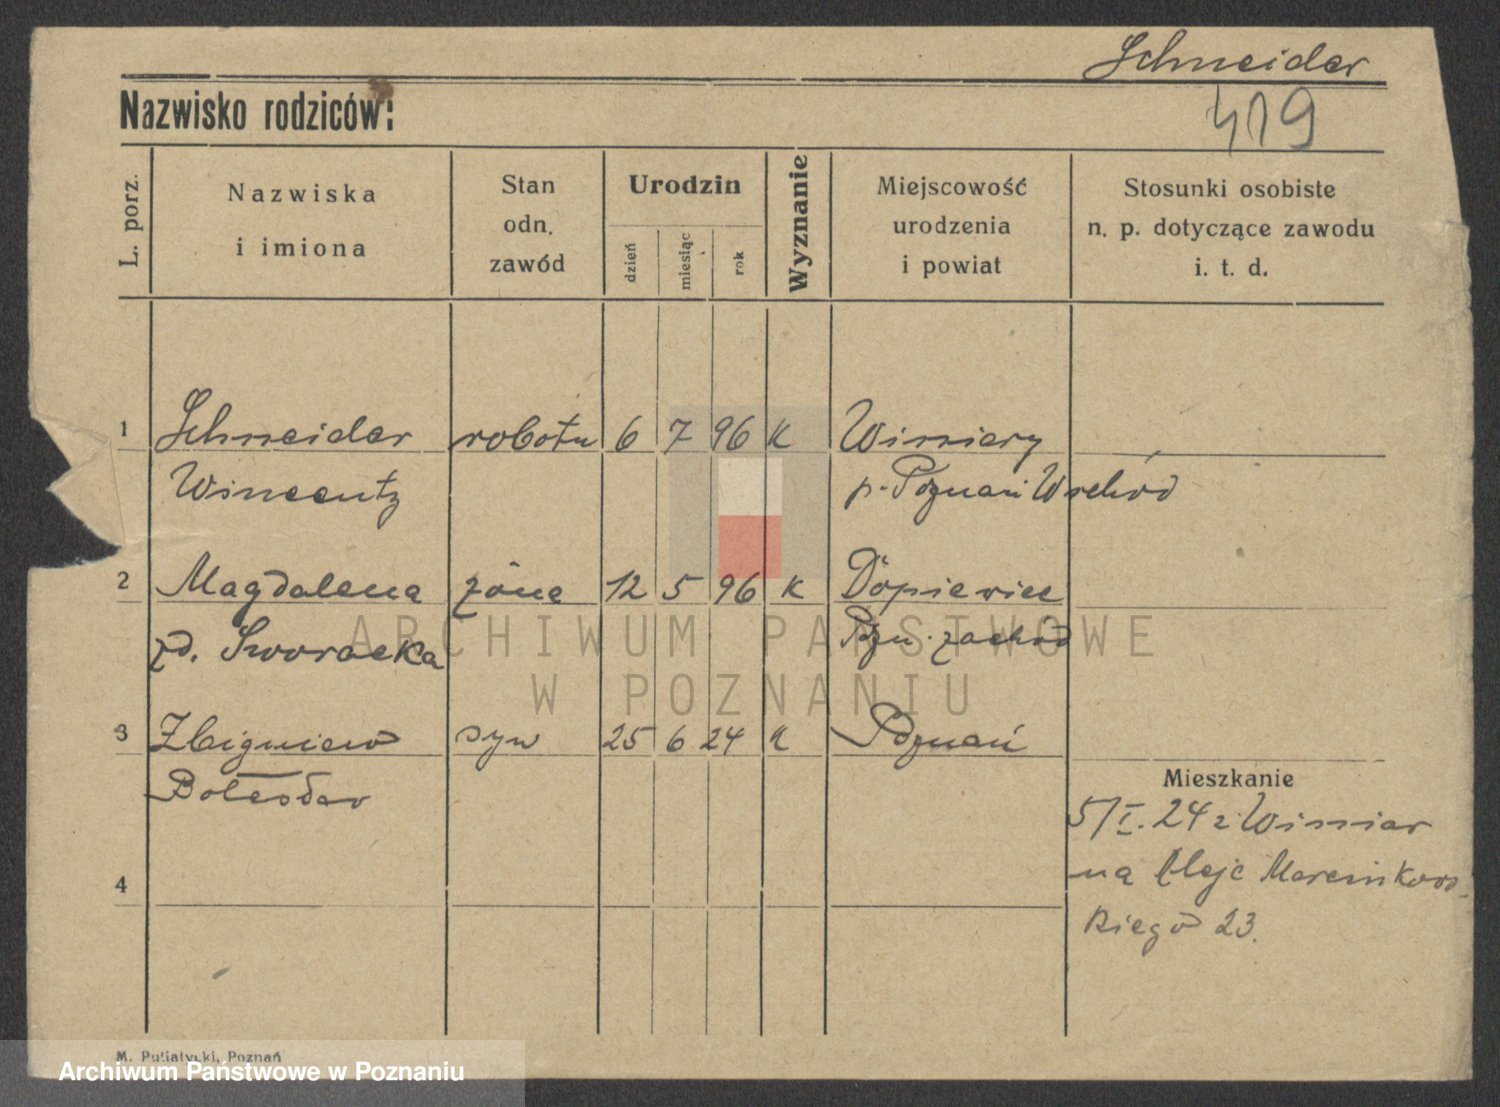 Schneider
Nazwisko rodziców:
419
L. porz.
Nazwiska
i imiona
Stan
odn.
zawód
Urodzin
dzień
miesiąc
rok
Wyznanie
Miejscowość
urodzenia
i powiat
Stosunki osobiste
n. p. dotyczące zawodu
i. t. d.
1 Schneider robotn 6 7 96 K Winiary
Wincenty p. Poznań Wschód
2 Magdalena żona 12 5 96 K Dopiewiec
zd. Sworacka Pozn. zachód
3 Zbigniew syn 25 6 24 K Poznań
Bolesław
Mieszkanie
5/I. 24 z Winiar
na Aleje Marcinkow
kiego 23.
4
M. Putiatycki, Poznań
ARCHIWUM PAŃSTWOWE
W POZNANIU
Archiwum Państwowe w Poznaniu